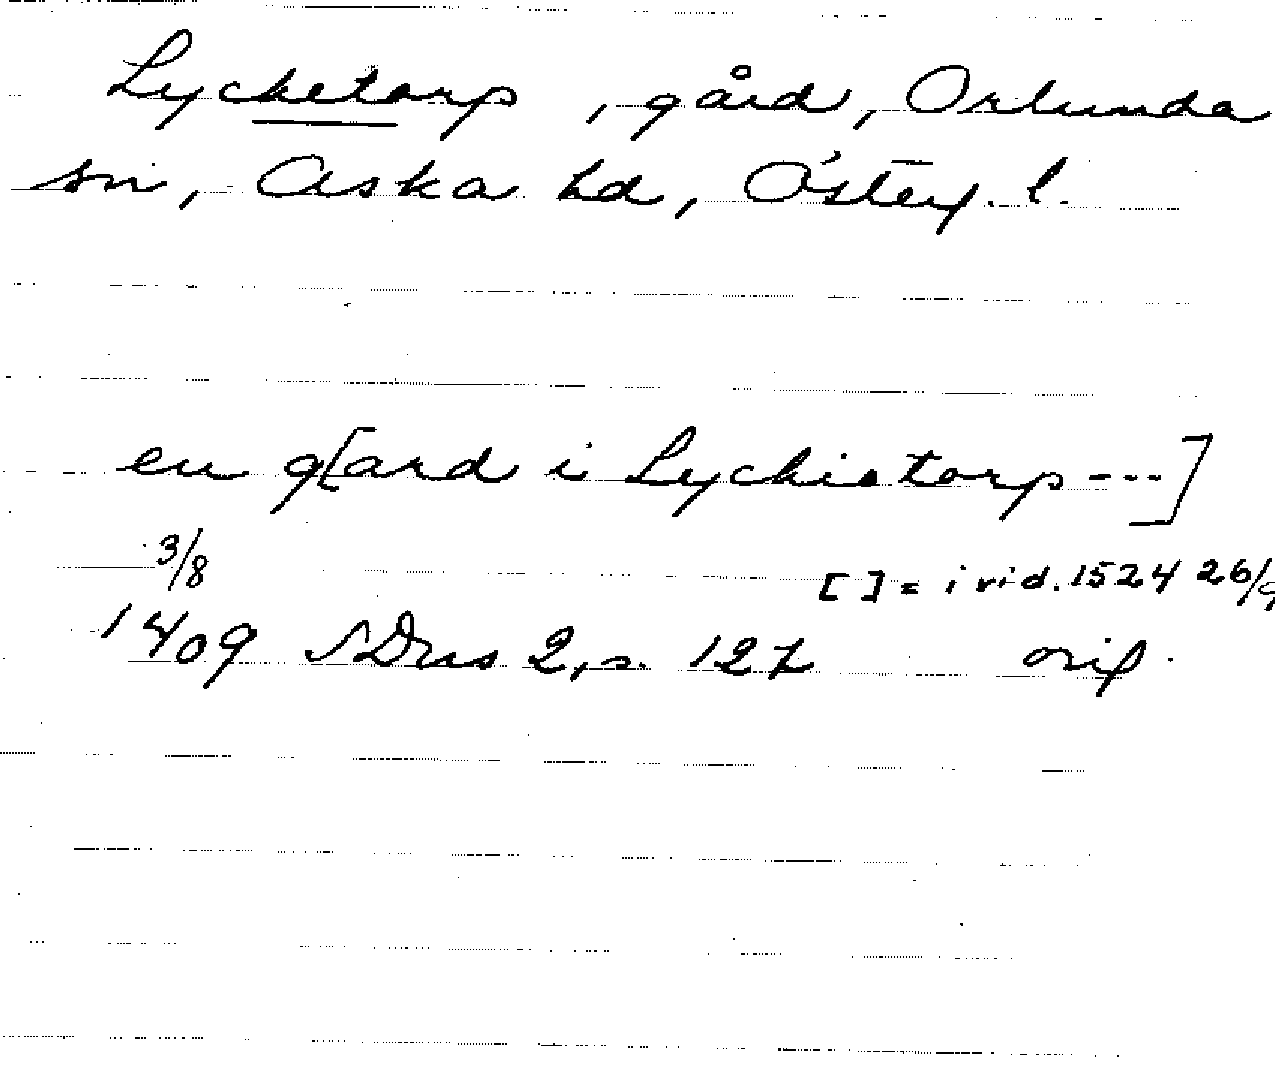 Lycketorp, gård, Orlunda
sn, Aska hd, Österg. l.
en g[ard i Lychiatorp ---]
3/8 [ ] = i vid. 1524 26/9
1409 SDns 2, s. 127 orig.